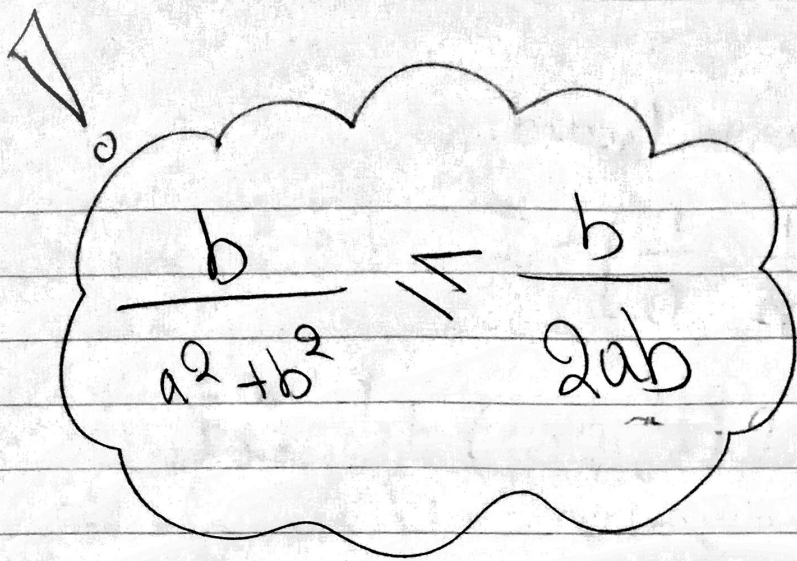 !
b/(a² + b²) ⩽ b/(2ab)